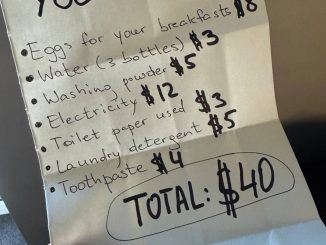 YOU
• Eggs for your breakfasts $8
• Water (3 bottles) $3
• Washing powder $5
• Electricity $12
• Toilet paper used $3
• Laundry detergent $5
• Toothpaste $4
TOTAL: $40